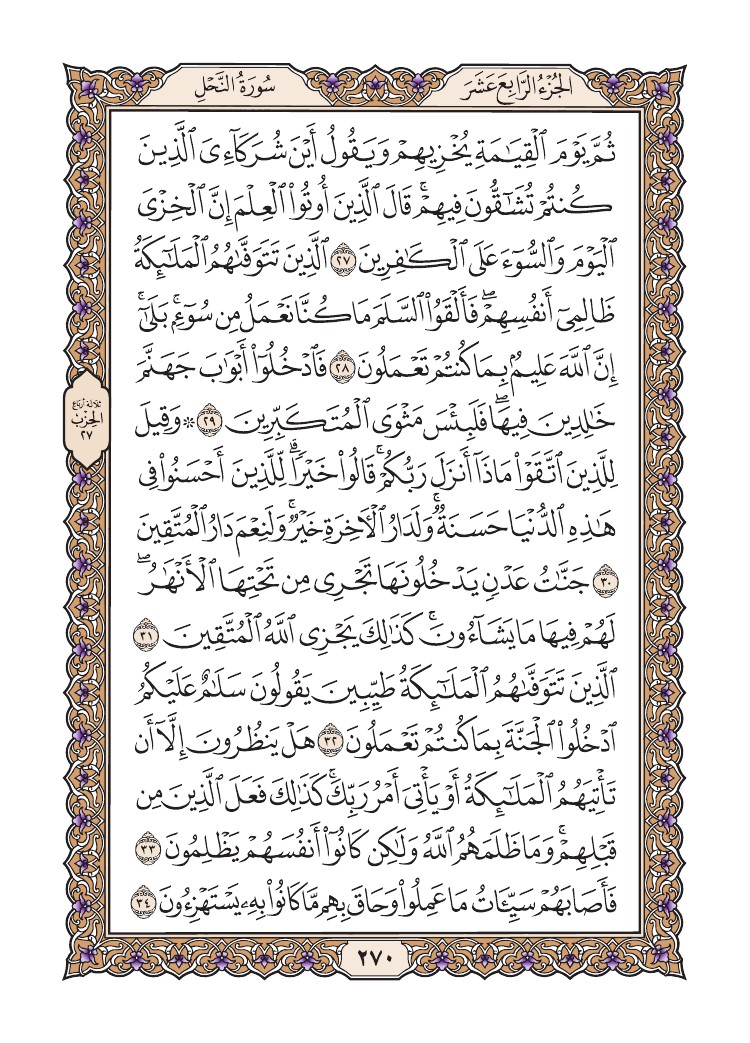 الجُزْءُ الرَّابِعَ عَشَرَ
سُورَةُ النَّحْلِ
ثُمَّ يَوْمَ ٱلْقِيَـٰمَةِ يُخْزِيهِمْ وَيَقُولُ أَيْنَ شُرَكَآءِىَ ٱلَّذِينَ
كُنتُمْ تُشَـٰٓقُّونَ فِيهِمْ ۚ قَالَ ٱلَّذِينَ أُوتُوا۟ ٱلْعِلْمَ إِنَّ ٱلْخِزْىَ
ٱلْيَوْمَ وَٱلسُّوٓءَ عَلَى ٱلْكَـٰفِرِينَ ٢٧ ٱلَّذِينَ تَتَوَفَّىٰهُمُ ٱلْمَلَـٰٓئِكَةُ
ظَالِمِىٓ أَنفُسِهِمْ ۖ فَأَلْقَوُا۟ ٱلسَّلَمَ مَا كُنَّا نَعْمَلُ مِن سُوٓءٍۭ ۚ بَلَىٰٓ ۚ
إِنَّ ٱللَّهَ عَلِيمٌۢ بِمَا كُنتُمْ تَعْمَلُونَ ٢٨ فَٱدْخُلُوٓا۟ أَبْوَٰبَ جَهَنَّمَ
خَـٰلِدِينَ فِيهَا ۖ فَلَبِئْسَ مَثْوَى ٱلْمُتَكَبِّرِينَ ٢٩ ۞ وَقِيلَ
لِلَّذِينَ ٱتَّقَوْا۟ مَاذَآ أَنزَلَ رَبُّكُمْ ۚ قَالُوا۟ خَيْرًا ۗ لِّلَّذِينَ أَحْسَنُوا۟ فِى
هَـٰذِهِ ٱلدُّنْيَا حَسَنَةٌ ۚ وَلَدَارُ ٱلْـَٔاخِرَةِ خَيْرٌ ۚ وَلَنِعْمَ دَارُ ٱلْمُتَّقِينَ
٣٠ جَنَّـٰتُ عَدْنٍ يَدْخُلُونَهَا تَجْرِى مِن تَحْتِهَا ٱلْأَنْهَـٰرُ ۖ
لَهُمْ فِيهَا مَا يَشَآءُونَ ۚ كَذَٰلِكَ يَجْزِى ٱللَّهُ ٱلْمُتَّقِينَ ٣١
ٱلَّذِينَ تَتَوَفَّىٰهُمُ ٱلْمَلَـٰٓئِكَةُ طَيِّبِينَ يَقُولُونَ سَلَـٰمٌ عَلَيْكُمُ
ٱدْخُلُوا۟ ٱلْجَنَّةَ بِمَا كُنتُمْ تَعْمَلُونَ ٣٢ هَلْ يَنظُرُونَ إِلَّآ أَن
تَأْتِيَهُمُ ٱلْمَلَـٰٓئِكَةُ أَوْ يَأْتِىَ أَمْرُ رَبِّكَ ۚ كَذَٰلِكَ فَعَلَ ٱلَّذِينَ مِن
قَبْلِهِمْ ۚ وَمَا ظَلَمَهُمُ ٱللَّهُ وَلَـٰكِن كَانُوٓا۟ أَنفُسَهُمْ يَظْلِمُونَ ٣٣
فَأَصَابَهُمْ سَيِّـَٔاتُ مَا عَمِلُوا۟ وَحَاقَ بِهِم مَّا كَانُوا۟ بِهِۦ يَسْتَهْزِءُونَ ٣٤
ثلاثة أرباع
الحِزْب
٢٧
٢٧٠